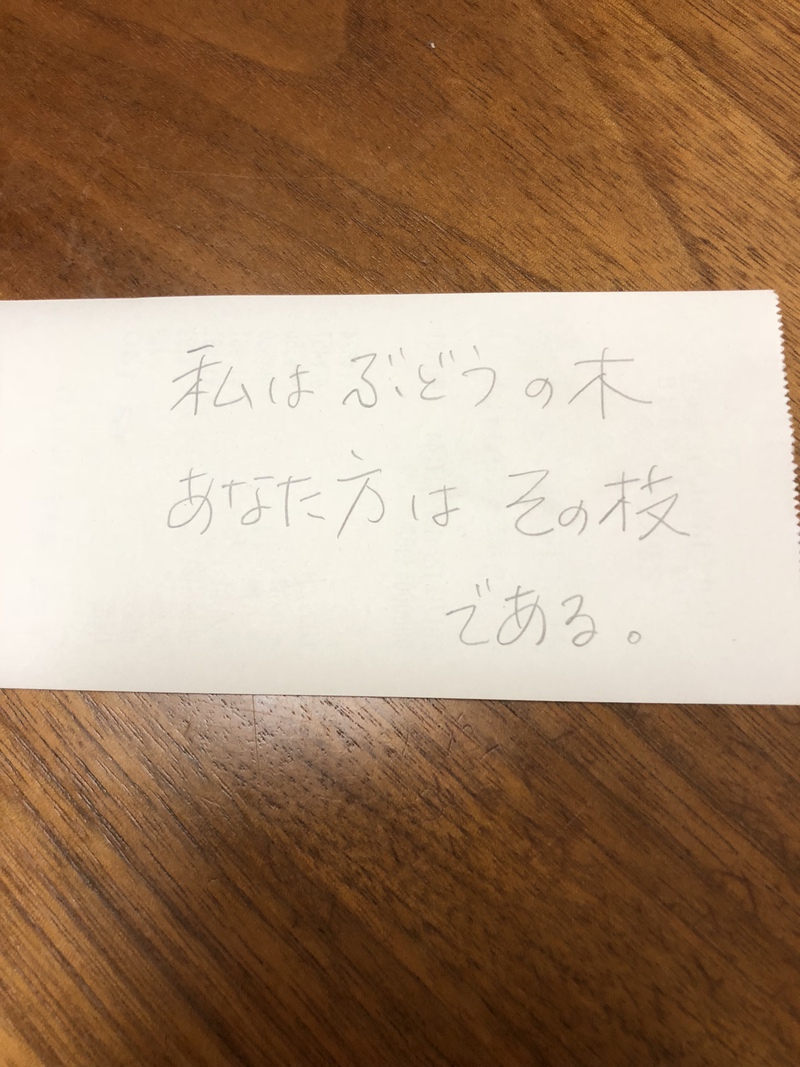 私はぶどうの木
あなた方はその枝
である。